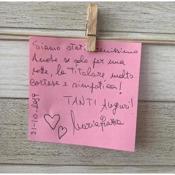 Siamo stati benissimo
Anche se solo per una
notte, la Titolare molto
cortese e simpatica!
TANTI Auguri!
31-10-2017